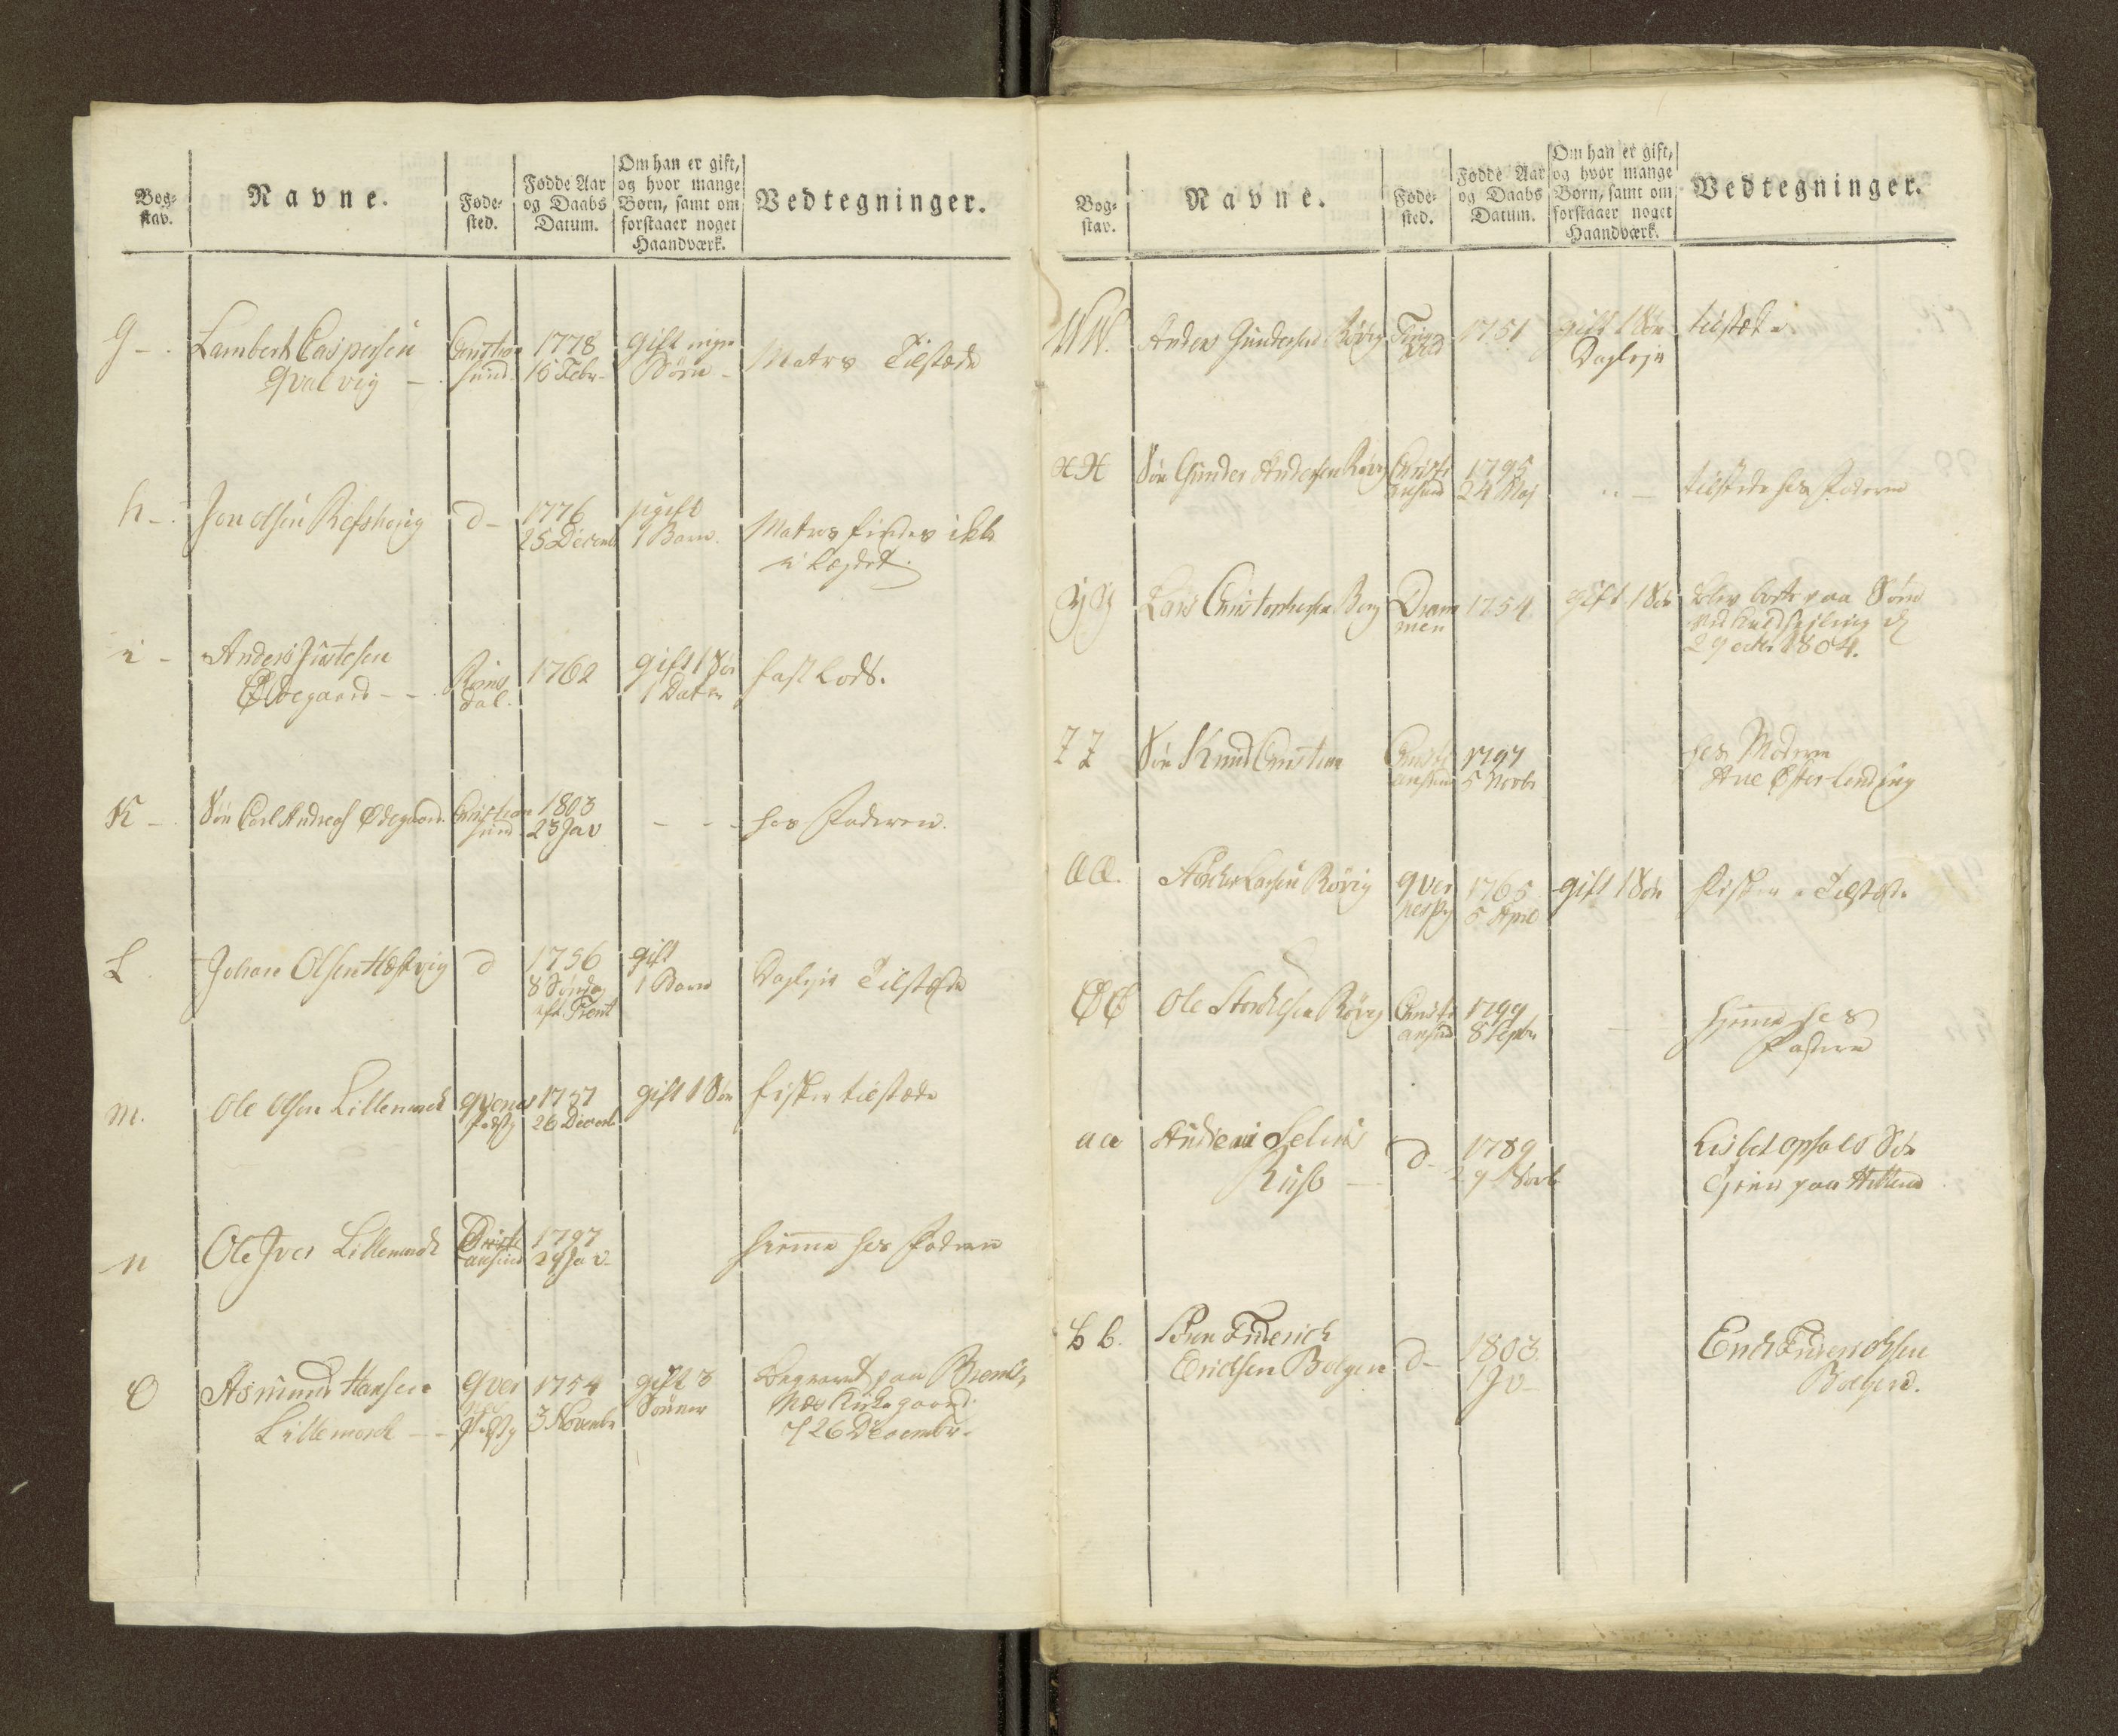 Bog-
stav.
Navne.
Føde-
sted.
Fødde Aar
og Daabs
Datum.
Om han er gift,
og hvor mange
Børn, samt om
forstaaer noget
Haandværk.
Vedtegninger.
g - Lambert Caspersen
Qvalvig -
Christian
sund
1778
16 Febr.
gift ingen
Børn -
Matros Tilstæde
h - Jon Olsen Refshovig
d -
1776
25 Decemb
ugift
1 Barn.
Matros findes ikke
i Lægdet.
i - Anders Justesen
Ødegaard - -
Roms
dal.
1762
gift 1 Søn
1 Dater
fast Lods.
K - Søn Carl Andreas Ødegaard.
Christian
sund.
1803
23 Jav
- - -
hos Faderen.
L Johan Olsen Hæstvig
d
1756
8 Søndag
eft. Trent
gift
1 Barn
Daglejer Tilstæde
m. Ole Olsen Lillemork
qvernes
Prestg
1757
26 Decemb
gift 1 Søn
fisker tilstæde
n Ole Iver Lillemork
Christi
ansund
1797
29 Jav.
hiemme hos Faderen
O Asmund Hansen
Lillemork - -
qver
nes
Prestg
1754
3 Novembr
gift 3
Sønner
Begravet paa Brems
Næs Kirkegaard.
26 Decembr.
Bog-
stav.
Navne.
Føde-
sted.
Fødde Aar
og Daabs
Datum.
Om han er gift,
og hvor mange
Børn, samt om
forstaaer noget
Haandværk.
Vedtegninger.
WW. Anders Gundersen Røvig
Ting
vold
1751
gift 1 Søn
Daglejer
tilstæde
XX Søn Gunder Andersen Røvig
Christi
ansund
1795
24 Maj
- -
tilstede hos Faderen
YY Lars Christophersen Berg
Dram
men
1754
gift 1 Søn
blev borte paa Søen
ved
29 octbr 1804.
ZZ Søn Knud Christian
Christi
ansund
1797
5 Novbr
hos Moderen
Ane Østerlending
ÆÆ. Størker Larsen Røvig
qver
nes Pg
1765
5 April
gift 1 Søn
fisker - Tilstæde
ØØ Ole Størkersen Røvig
Christi
ansund
1799
8 Septbr
-
hjemme hos
Faderen
aa Andreas Selius
Riisb -
d -
1789
29 Novbr
Lisbet Opsals Søn
tjener paa
bb. Søren Friderich
Erichsen Bolgen
d -
1803
1 Jv -
Erich Friderichsen
Bolgen.